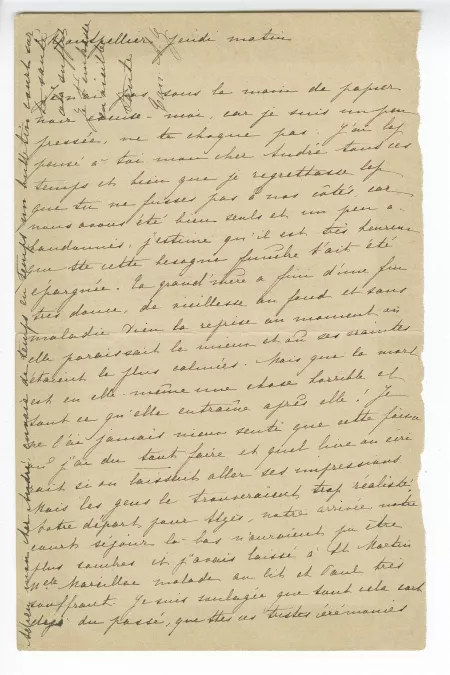 Montpellier Jeudi matin
n'ai pas sous la main de papier
noir excuse-moi, car je suis un peu
pressée, ne te choque pas. J'ai bcp
pensé à toi mon cher André tous ces
temps et bien que je regrettasse bcp
que tu ne fusses pas à nos côtés car
nous avons été bien seuls et un peu a-
bandonnés, j'estime qu'il est très heureux
que tte cette besogne funèbre t'ait été
épargnée. La grand'mère a fini d'une fin
très douce, de vieillesse au fond et sans
maladie. Dieu la reprise au moment où
elle paraissait le mieux et où ses craintes
étaient le plus calmées. Mais que la mort
est en elle-même une chose horrible et
tout ce qu'elle entraîne après elle! Je
ne l'ai jamais mieux senti que cette fois
où j'ai du tout faire et quel livre on écri
rait si on laissait aller ses impressions
Mais les gens le trouveraient trop réaliste.
Notre départ pour Uzès, notre arrivée, notre
court séjour là-bas n'auraient pu être
plus sombres et j'avais laissé à St Martin
Mlle Marcillac malade au lit et Paul très
souffrant. Je suis soulagée que tout cela soit
déjà du passé, que ttes ces tristes cérémonies
Adieu mon cher André, envoie de temps en temps un bulletin court sur
ta santé